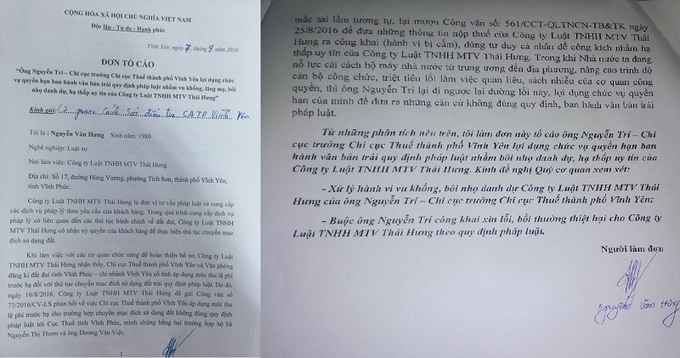 CỘNG HÒA XÃ HỘI CHỦ NGHĨA VIỆT NAM
Độc lập - Tự do - Hạnh phúc
Vĩnh Yên, ngày 7 tháng 9 năm 2016
ĐƠN TỐ CÁO
"Ông Nguyễn Trí – Chi cục trưởng Chi cục Thuế thành phố Vĩnh Yên lợi dụng chức
vụ quyền hạn ban hành văn bản trái quy định pháp luật nhằm vu khống, lăng mạ, bôi
nhọ danh dự, hạ thấp uy tín của Công ty Luật TNHH MTV Thái Hưng"
Kính gửi: Cơ quan Cảnh sát điều tra CATP Vĩnh Yên
Tôi là : Nguyễn Văn Hưng Sinh năm: 1980
Nghề nghiệp: Luật sư
Nơi làm việc: Công ty Luật TNHH MTV Thái Hưng
Địa chỉ: Số 17, đường Hùng Vương, phường Tích Sơn, thành phố Vĩnh Yên,
tỉnh Vĩnh Phúc.
Công ty Luật TNHH MTV Thái Hưng là đơn vị tư vấn pháp luật và cung cấp
các dịch vụ pháp lý theo yêu cầu của khách hàng. Trong quá trình cung cấp dịch vụ
pháp lý có liên quan đến các thủ tục hành chính về đất đai, Công ty Luật TNHH
MTV Thái Hưng có nhận uỷ quyền của khách hàng để thực hiện thủ tục chuyển mục
đích sử dụng đất.
Khi làm việc với các cơ quan chức năng để hoàn thiện hồ sơ, Công ty Luật
TNHH MTV Thái Hưng nhận thấy, Chi cục Thuế thành phố Vĩnh Yên và Văn phòng
đăng kí đất đai tỉnh Vĩnh Phúc – chi nhánh Vĩnh Yên cố tình áp dụng mức thu lệ phí
trước bạ đối với thủ tục chuyển mục đích sử dụng đất trái quy định pháp luật. Do đó,
ngày 16/8/2016, Công ty Luật TNHH MTV Thái Hưng đã gửi Công văn số
73/2016/CV-LS phản hồi về việc Chi cục Thuế thành phố Vĩnh Yên áp dụng mức thu
lệ phí trước bạ cho trường hợp chuyển mục đích sử dụng đất không đúng quy định
pháp luật tới Cục Thuế tỉnh Vĩnh Phúc, minh chứng bằng trường hợp hộ bà
Nguyễn Thị Thơm và ông Dương Văn Việt.
1
mắc sai lầm tương tự, lại mượn Công văn số: 561/CCT-QLTNCN-TB&TK ngày
25/8/2016 để đưa những thông tin nộp thuế của Công ty Luật TNHH MTV Thái
Hưng ra công khai (hành vi bị cấm), dùng tư duy cá nhân để công kích nhằm hạ
thấp uy tín của Công ty Luật TNHH MTV Thái Hưng. Trong khi Nhà nước ta đang
nỗ lực cải cách bộ máy nhà nước từ trung ương đến địa phương, nâng cao trình độ
cán bộ công chức, triệt tiêu lối làm việc quan liêu, sách nhiễu của cơ quan công
quyền, thì ông Nguyễn Trí lại đi ngược lại đường lối này, lợi dụng chức vụ quyền
hạn của mình để đưa ra những căn cứ không đúng quy định, ban hành văn bản trái
pháp luật.
Từ những phân tích nêu trên, tôi làm đơn này tố cáo ông Nguyễn Trí – Chi
cục trưởng Chi cục Thuế thành phố Vĩnh Yên lợi dụng chức vụ quyền hạn ban
hành văn bản trái quy định pháp luật nhằm bôi nhọ danh dự, hạ thấp uy tín của
Công ty Luật TNHH MTV Thái Hưng. Kính đề nghị Quý cơ quan xem xét:
- Xử lý hành vi vu khống, bôi nhọ danh dự Công ty Luật TNHH MTV Thái
Hưng của ông Nguyễn Trí – Chi cục trưởng Chi cục Thuế thành phố Vĩnh Yên;
- Buộc ông Nguyễn Trí công khai xin lỗi, bồi thường thiệt hại cho Công ty
Luật TNHH MTV Thái Hưng theo quy định pháp luật.
Người làm đơn
Nguyễn Văn Hưng